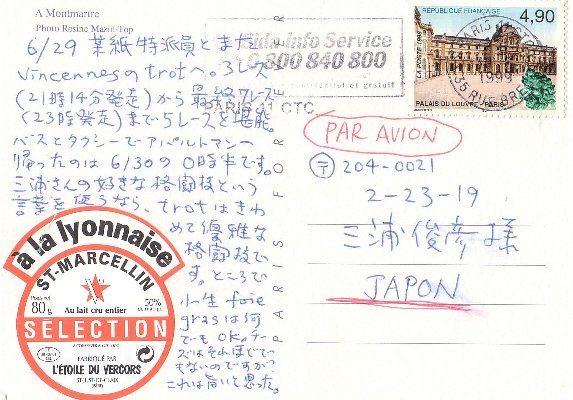 A Montmartre
Photo Rosine Mazin-Top
6/29 葉紙特派員とまた
Vincennesのtrotへ。3レース
(21時14分発走)から最終7レース
(23時発走)まで5レースを堪能。
バスとタクシーでアパルトマンへ
帰ったのは6/30の0時半です。
三浦さんの好きな格闘技という
言葉を使うなら、trotはきわ
めて優雅な
格闘技で
す。ところで
小生foie
grasは何
でもOK。チー
ズはそれほどで
もないのですが
これは旨いと思った。
à la lyonnaise
ST-MARCELLIN
Poids net
80g
Au lait cru entier
50%
SÉLECTION
FABRIQUÉ PAR
L'ÉTOILE DU VERCORS
ST-JUST-DE-CLAIX
Sida Info Service
0 800 840 800
confidentiel et gratuit
PARIS 11 CTC
RÉPUBLIQUE FRANÇAISE
4,90
LA POSTE 1998
1999
PALAIS DU LOUVRE - PARIS
PAR AVION
〒204-0021
2-23-19
三浦俊彦様
JAPON